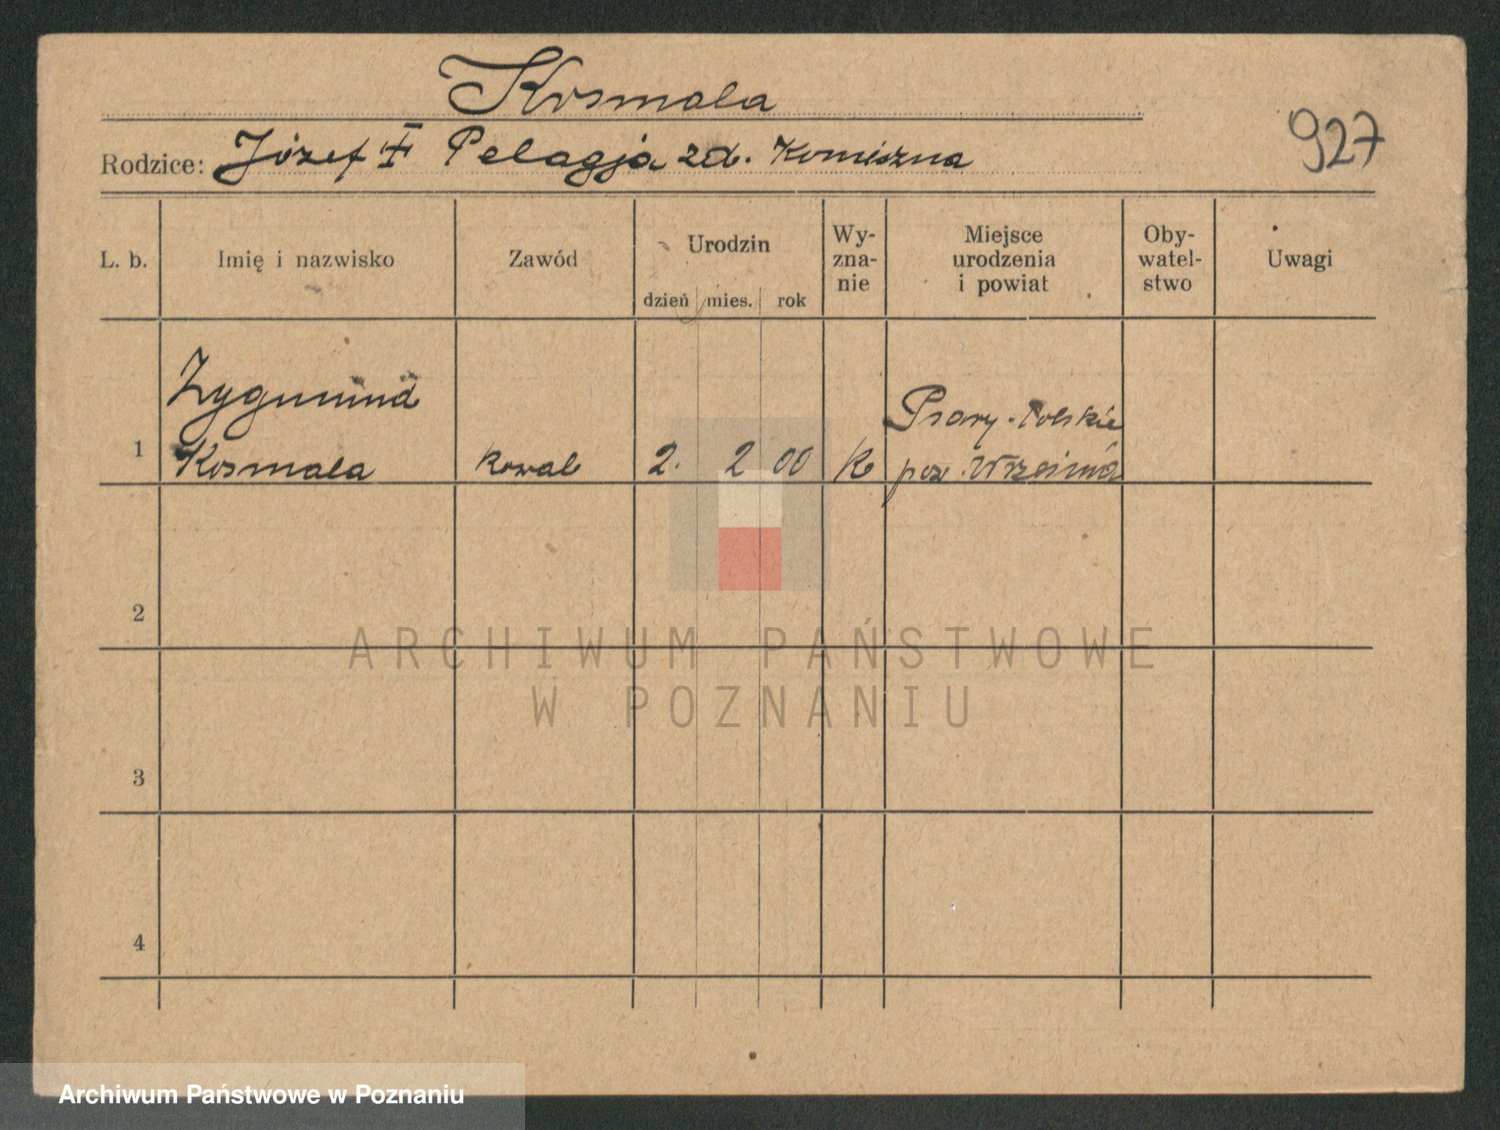 Kosmala
927
Rodzice: Józef ‡ Pelagja zd. Komiszna
L. b. Imię i nazwisko Zawód Urodzin dzień mies. rok Wy-zna-nie Miejsce urodzenia i powiat Oby-watel-stwo Uwagi
Zygmund
1 Kosmala kowal 2. 2 00 K Psary-Polskie
pow. Września
2
3
4
ARCHIWUM PAŃSTWOWE
W POZNANIU
Archiwum Państwowe w Poznaniu